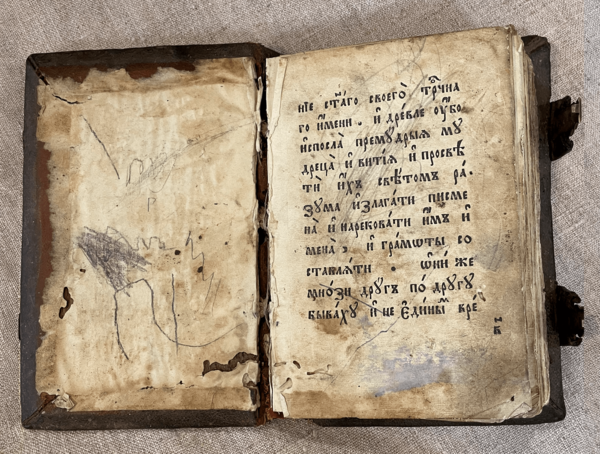 нїе ст҃а́го своегѡ̀ трⷪ҇чна
го и҆́мени . и҆ дре́вле ᲂу҆́бо
и҆спосла̀ премꙋ́дрыѧ мꙋ
дреца̀ и҆ витїѧ и҆ просвѣ
ти и҆́хъ свѣ́томъ ра́ .
зꙋма и҆злага́ти писме
на̀ и҆ нарекова́ти и҆̀мъ и҆
мена̀ , и҆ гра́мѡты со
ставлѧ́ти . ѡ҆ни́ же
мно́зи дрꙋгъ по́ дрꙋгꙋ
быва́хꙋ и҆ не є҆ди́нымъ вре́